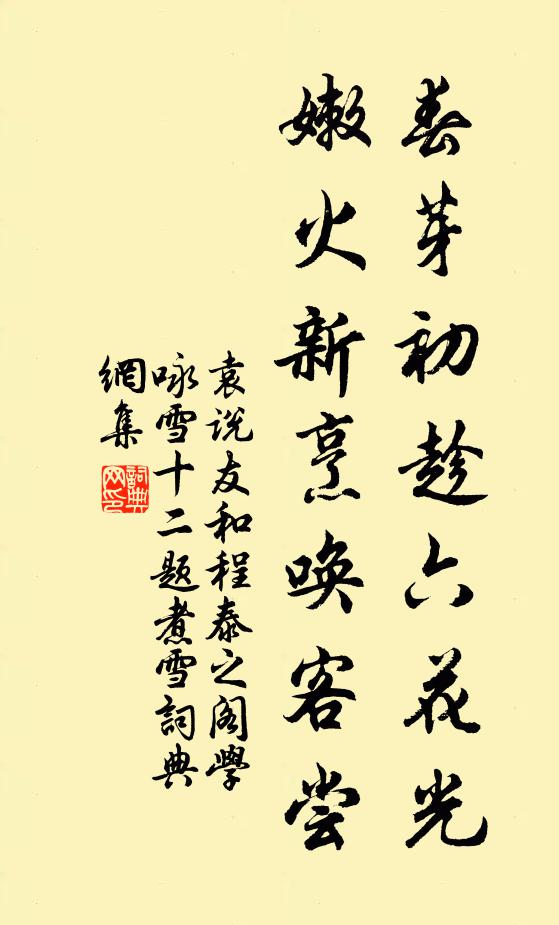 春芽初趁六花光
嫩火新烹唤客尝
袁说友和程泰之阁學
咏雪十二题煮雪詞典
網集
詞典
网印